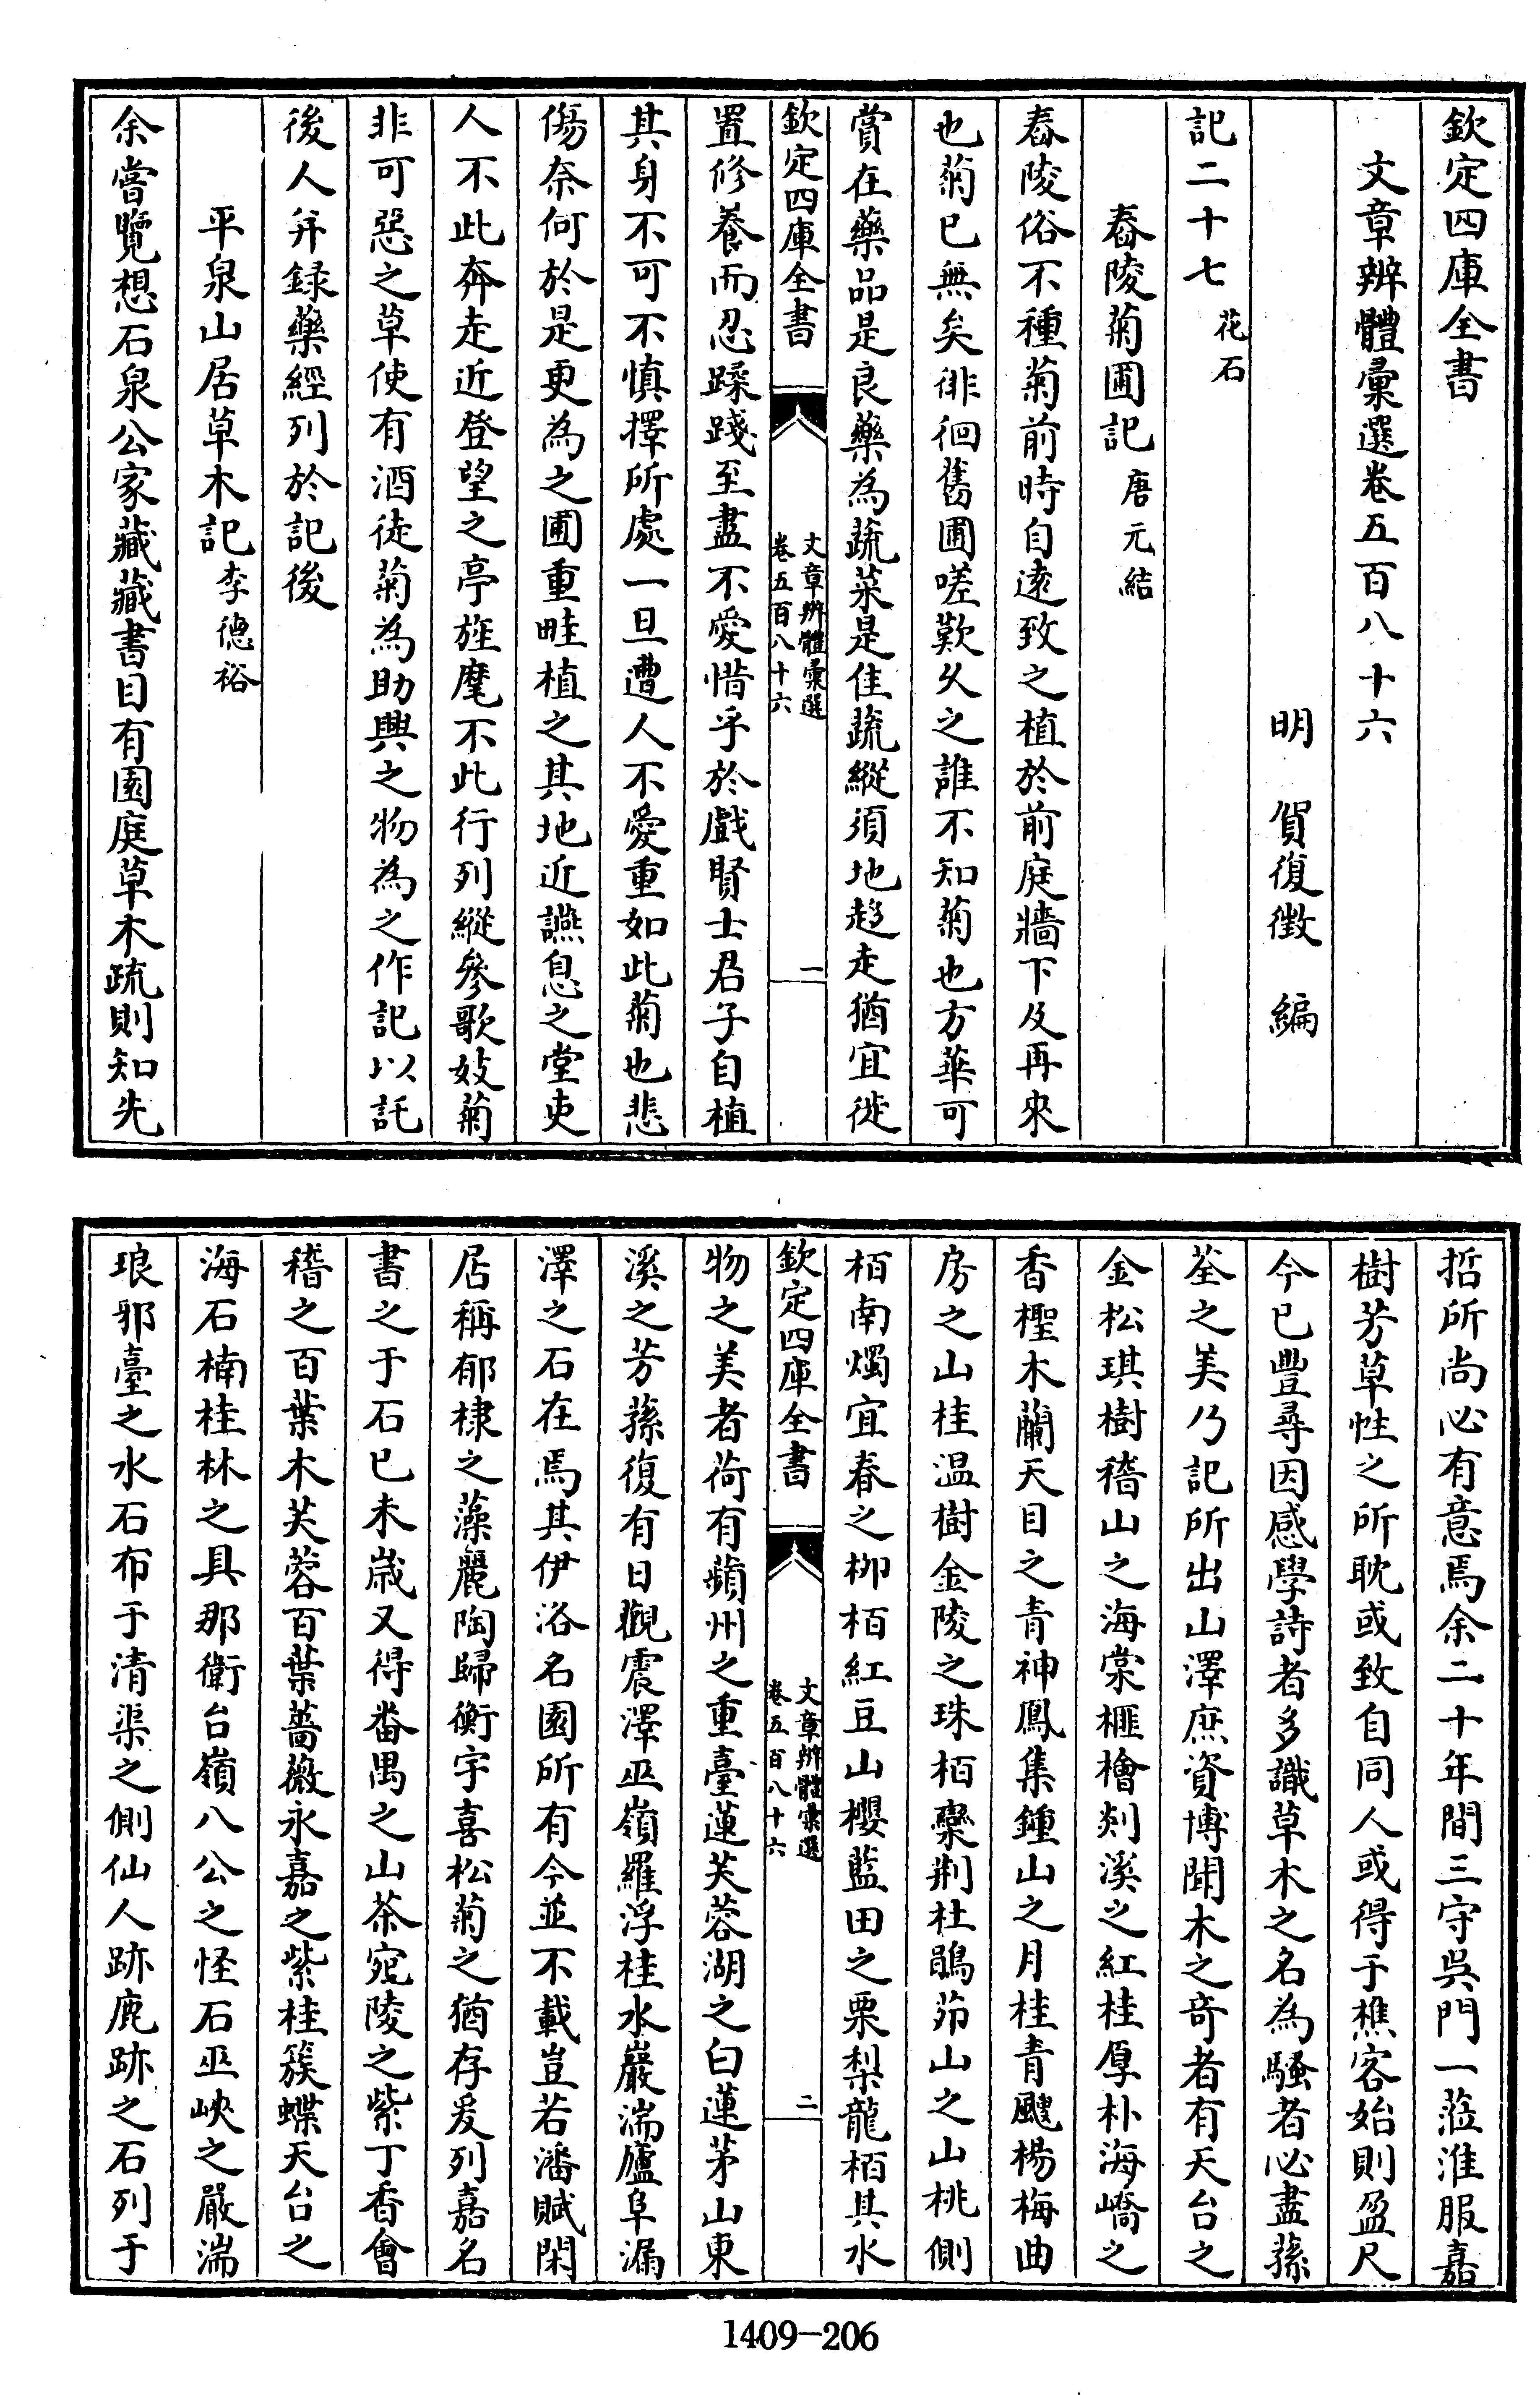 欽定四庫全書
文章辨體彙選卷五百八十六
明　賀復徵　編
記二十七花石
舂陵菊圃記唐元結
舂陵俗不種菊前時自逺致之植於前庭牆下及再來
也菊已無矣徘徊舊圃嗟歎乆之誰不知菊也方華可
賞在藥品是良藥為蔬菜是佳蔬縱須地趨走猶宜徙
欽定四庫全書
文章辨體彙選
卷五百八十六
一
置修養而忍蹂踐至盡不愛惜乎於戲賢士君子自植
其身不可不慎擇所處一旦遭人不愛重如此菊也悲
傷奈何於是更為之圃重畦植之其地近讌息之堂吏
人不此奔走近登望之亭旌麾不此行列縱參歌妓菊
非可惡之草使有酒徒菊為助興之物為之作記以託
後人并録藥經列於記後
平泉山居草木記李德裕
余嘗覽想石泉公家藏藏書目有園庭草木疏則知先
哲所尚必有意焉余二十年間三守吳門一蒞淮服嘉
樹芳草性之所耽或致自同人或得于樵客始則盈尺
今已豐尋因感學詩者多識草木之名為騷者必盡蓀
荃之美乃記所出山澤庶資博聞木之奇者有天台之
金松琪樹稽山之海棠榧檜剡溪之紅桂厚朴海嶠之
香檉木蘭天目之青神鳳集鍾山之月桂青颼楊梅曲
房之山桂温樹金陵之珠栢欒荆杜鵑茆山之山桃側
栢南燭宜春之柳栢紅豆山櫻藍田之栗梨龍栢其水
欽定四庫全書
文章辨體彙選
卷五百八十六
二
物之美者荷有蘋州之重臺蓮芙蓉湖之白蓮茅山東
溪之芳蓀復有日觀震澤巫嶺羅浮桂水嚴湍廬阜漏
澤之石在焉其伊洛名園所有今並不載豈若潘賦閑
居稱郁棣之藻麗陶歸衡宇喜松菊之猶存爰列嘉名
書之于石已未嵗又得番禺之山茶宛陵之紫丁香會
稽之百葉木芙蓉百葉薔薇永嘉之紫桂簇蝶天台之
海石楠桂林之具那衛台嶺八公之怪石巫峽之嚴湍
琅邪臺之水石布于清渠之側仙人跡鹿跡之石列于
1409-206